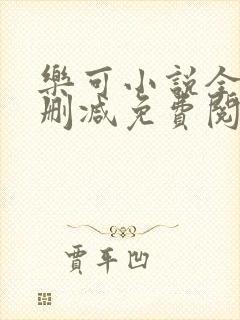 樂可小說全
刪減免費閱
賈平凹